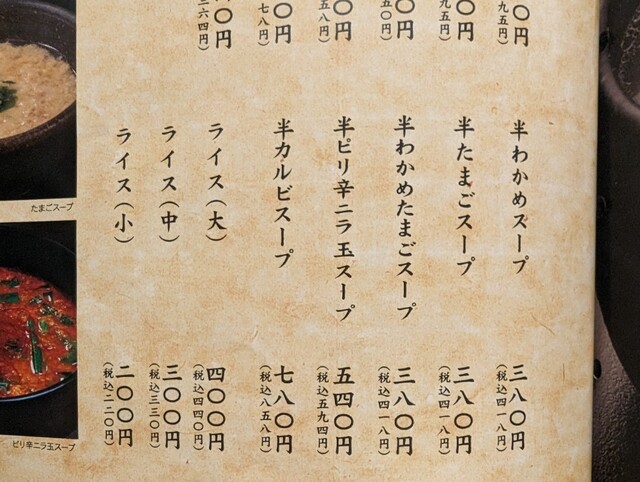 〇円
九五円)
〇円
九五円)
〇円
五〇円)
〇円
五八円)
〇円
七八円)
〇円
二六四円)
半わかめスープ
三八〇円
(税込四一八円)
半たまごスープ
三八〇円
(税込四一八円)
半わかめたまごスープ
三八〇円
(税込四一八円)
半ピリ辛ニラ玉スープ
五四〇円
(税込五九四円)
半カルビスープ
七八〇円
(税込八五八円)
ライス(大)
四〇〇円
(税込四四〇円)
ライス(中)
三〇〇円
(税込三三〇円)
ライス(小)
二〇〇円
(税込二二〇円)
たまごスープ
ピリ辛ニラ玉スープ